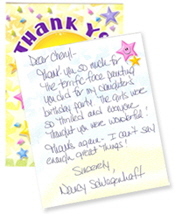 THANK YO
Dear Cheryl-
Thank you so much for
the terrific face painting
you did for my daughter's
birthday party. The girls were
so thrilled and everyone
thought you were wonderful!
Thanks again - I can't say
enough great things!
Sincerely,
Nancy Schlagenhaft